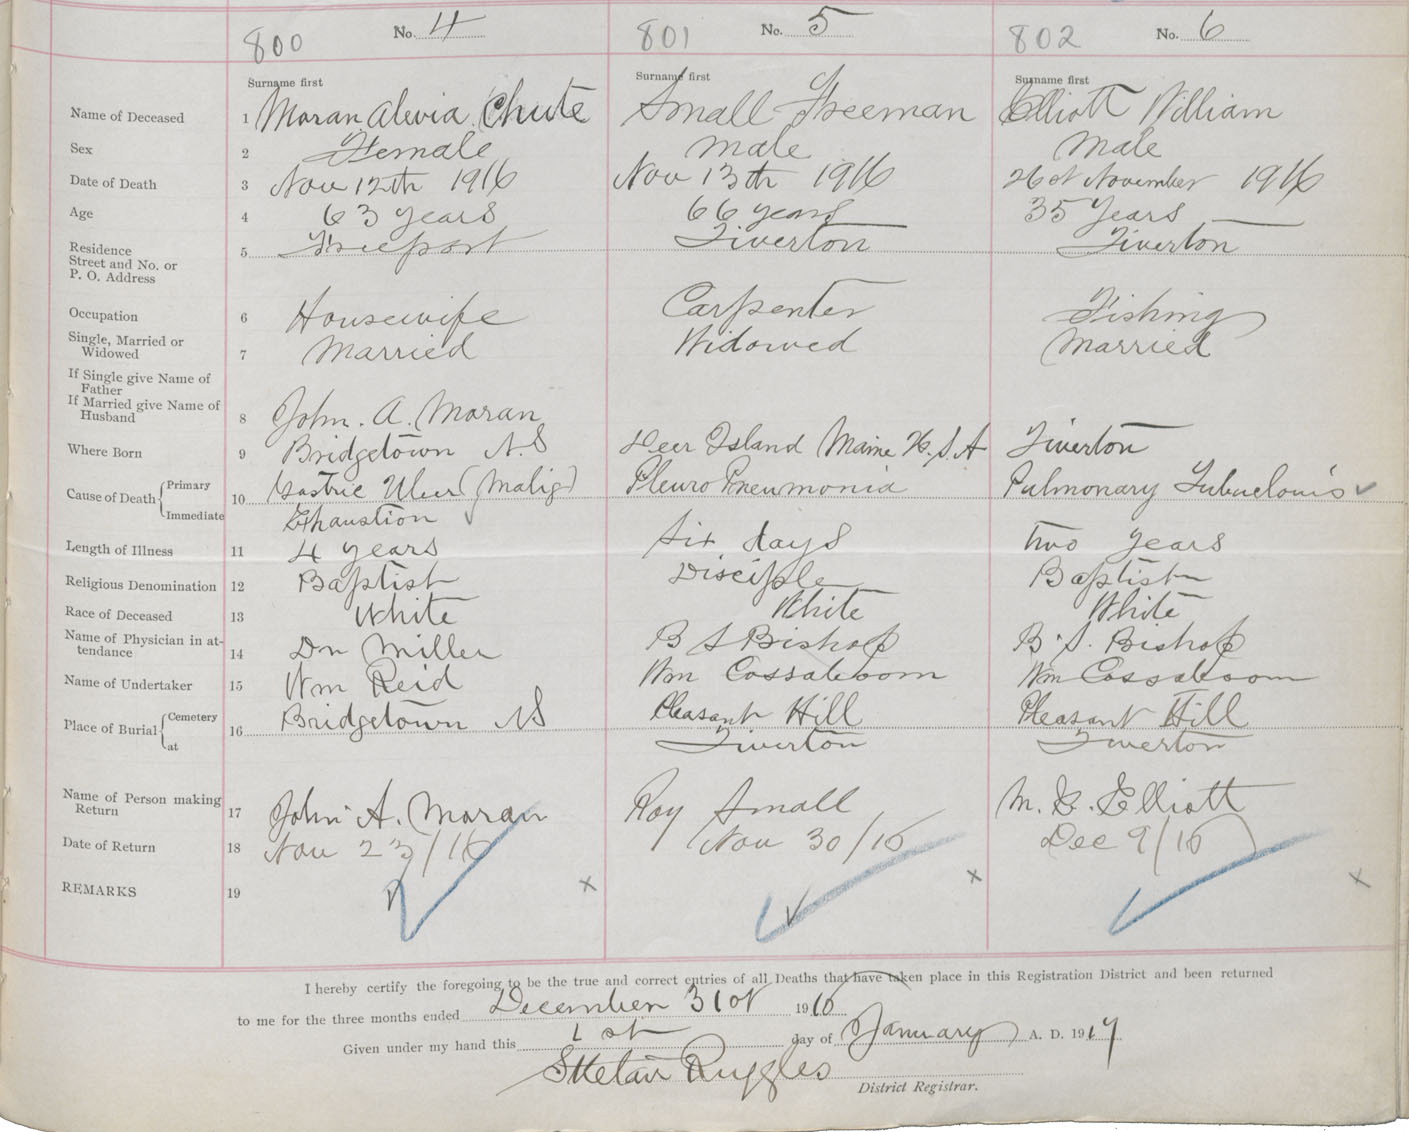 800 No. 4 801 No. 5 802 No. 6
Surname first Surname first Surname first
Name of Deceased 1 Moran Alevia Chute Small Freeman Elliott William
Sex 2 Female Male Male
Date of Death 3 Nov 12th 1916 Nov 13th 1916 26st November 1916
Age 4 63 years 66 years 35 years
Residence
Street and No. or
P. O. Address 5 Freeport Tiverton Tiverton
Occupation 6 Housewife Carpenter Fishing
Single, Married or
Widowed 7 Married Widowed Married
If Single give Name of
Father
If Married give Name of
Husband 8 John. A. Moran
Where Born 9 Bridgetown N.S Deer Island Maine U.S.A Tiverton
Cause of Death Primary 10 Gastric Ulcer (Malig) Pleuro Pneumonia Pulmonary Tubuclouis
Immediate Exhaustion
Length of Illness 11 4 years Six days Two years
Religious Denomination 12 Baptist Disciple Baptist
Race of Deceased 13 White White White
Name of Physician in at-
tendance 14 Dr Miller B S Bishop B. S. Bishop
Name of Undertaker 15 Wm Reid Wm Cossaboom Wm Cossaboom
Place of Burial Cemetery 16 Bridgetown NS Pleasant Hill Pleasant Hill
at Tiverton Tiverton
Name of Person making
Return 17 John A. Moran Roy Small M. E. Elliott
Date of Return 18 Nov 23/16 Nov 30/16 Dec 9/16
REMARKS 19 x x x
I hereby certify the foregoing to be the true and correct entries of all Deaths that have taken place in this Registration District and been returned
to me for the three months ended December 31st 1916
Given under my hand this 1st day of January A. D. 1917
Ruggles
District Registrar.